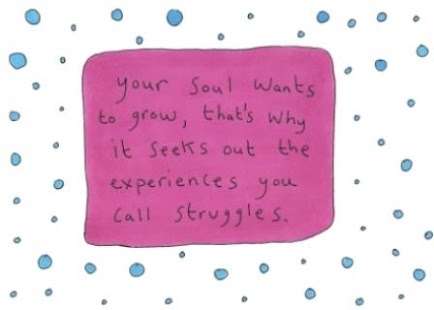 your soul wants
to grow, that's why
it seeks out the
experiences you
call struggles.